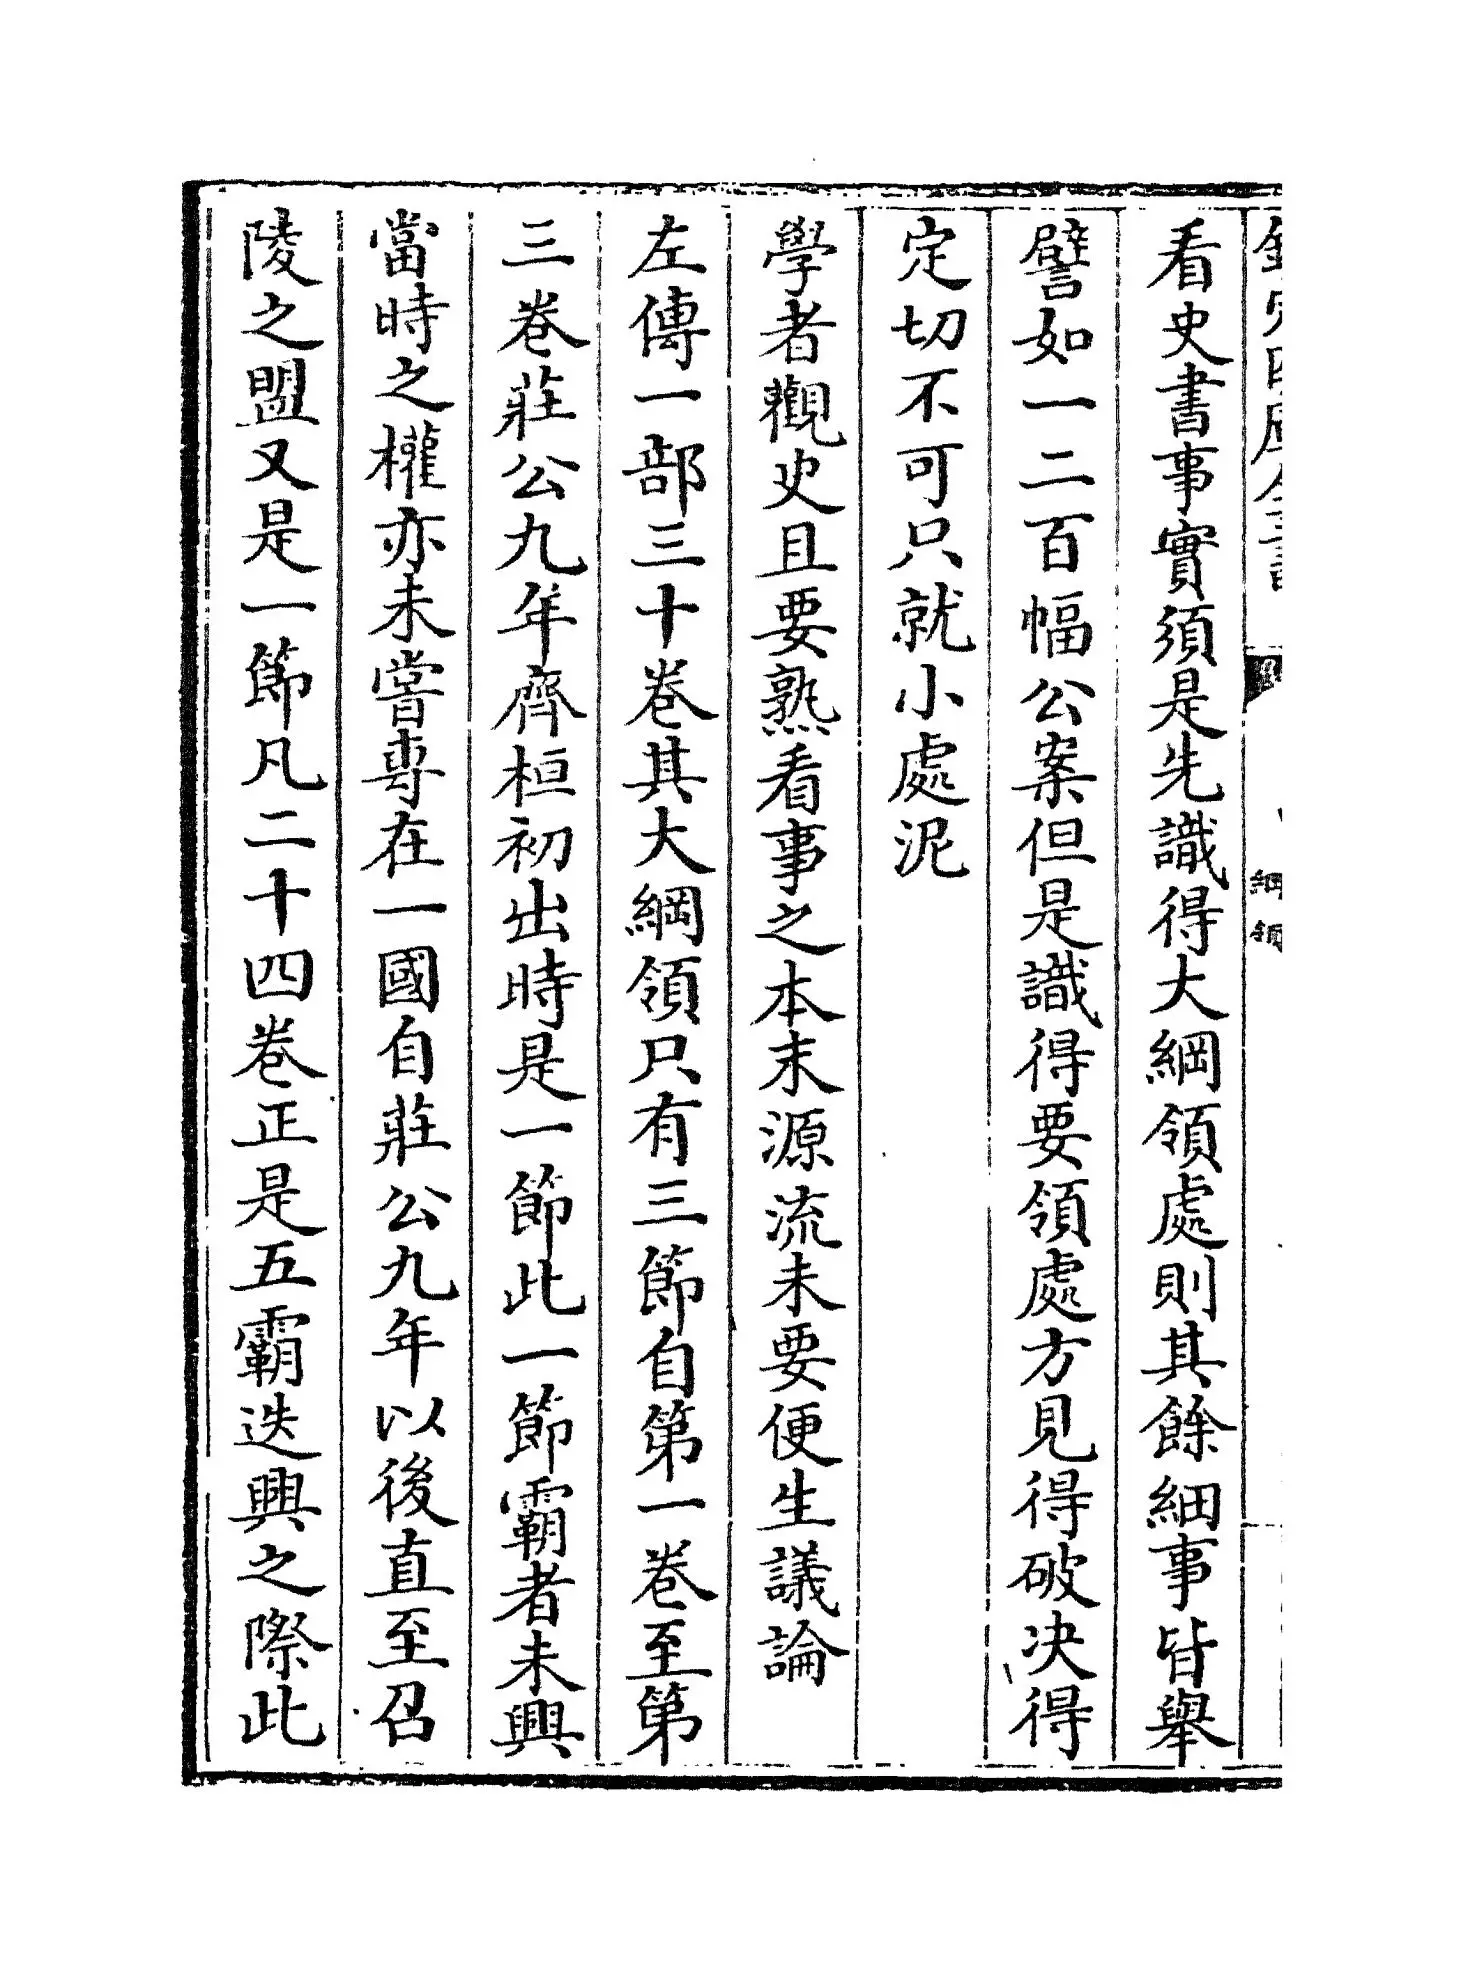 看史書事實須是先識得大綱領處則其餘細事皆舉
譬如一二百幅公案但是識得要領處方見得破决得
定切不可只就小處泥
學者觀史且要熟看事之本末源流未要便生議論
左傳一部三十卷其大綱領只有三節自第一卷至第
三卷莊公九年齊桓初出時是一節此一節霸者未興
當時之權亦未嘗專在一國自莊公九年以後直至召
陵之盟又是一節凡二十四卷正是五霸迭興之際此